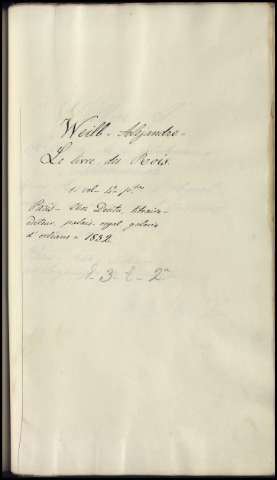 Weill - Alejandro -
Le livre des Rois.
1 vol - 4º pta
Paris - Chez Dentu, libraire-
éditeur, palais-royal galerie
d'orléans - 1852.
E - 3 - t - 2ª